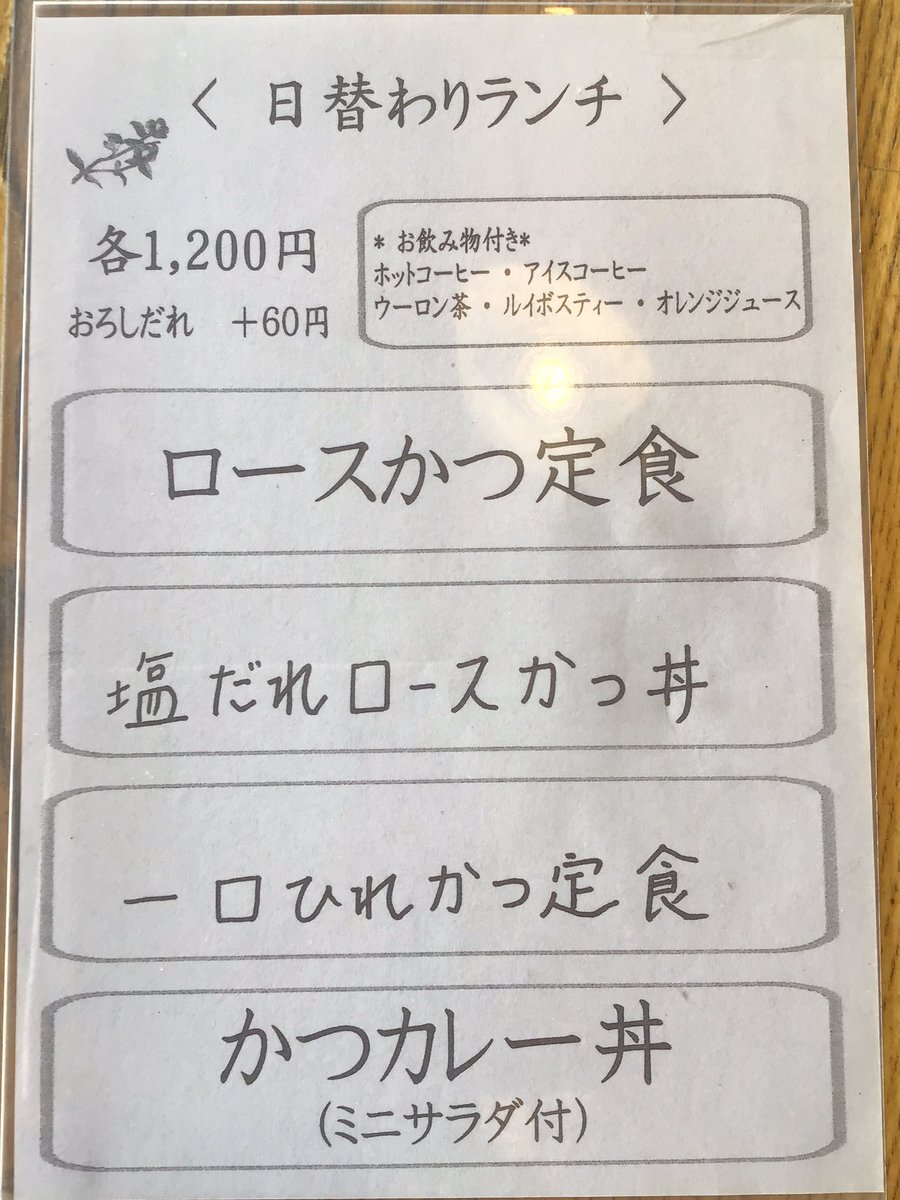 〈 日替わりランチ 〉
各1,200円
おろしだれ ＋60円
* お飲み物付き*
ホットコーヒー・アイスコーヒー
ウーロン茶・ルイボスティー・オレンジジュース
ロースかつ定食
塩だれロースかつ丼
一口ひれかつ定食
かつカレー丼
(ミニサラダ付)